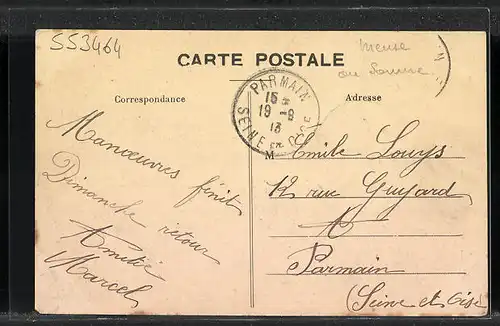 SS3464
CARTE POSTALE
Meuse
ou Somme
PARMAIN
15
19-9
13
SEINE ET OISE
Correspondance
Adresse
Manœuvres finit
Dimanche retour
Amitié
Marcel
M Emile Louys
12 rue Guyard
A
Parmain
(Seine et Oise